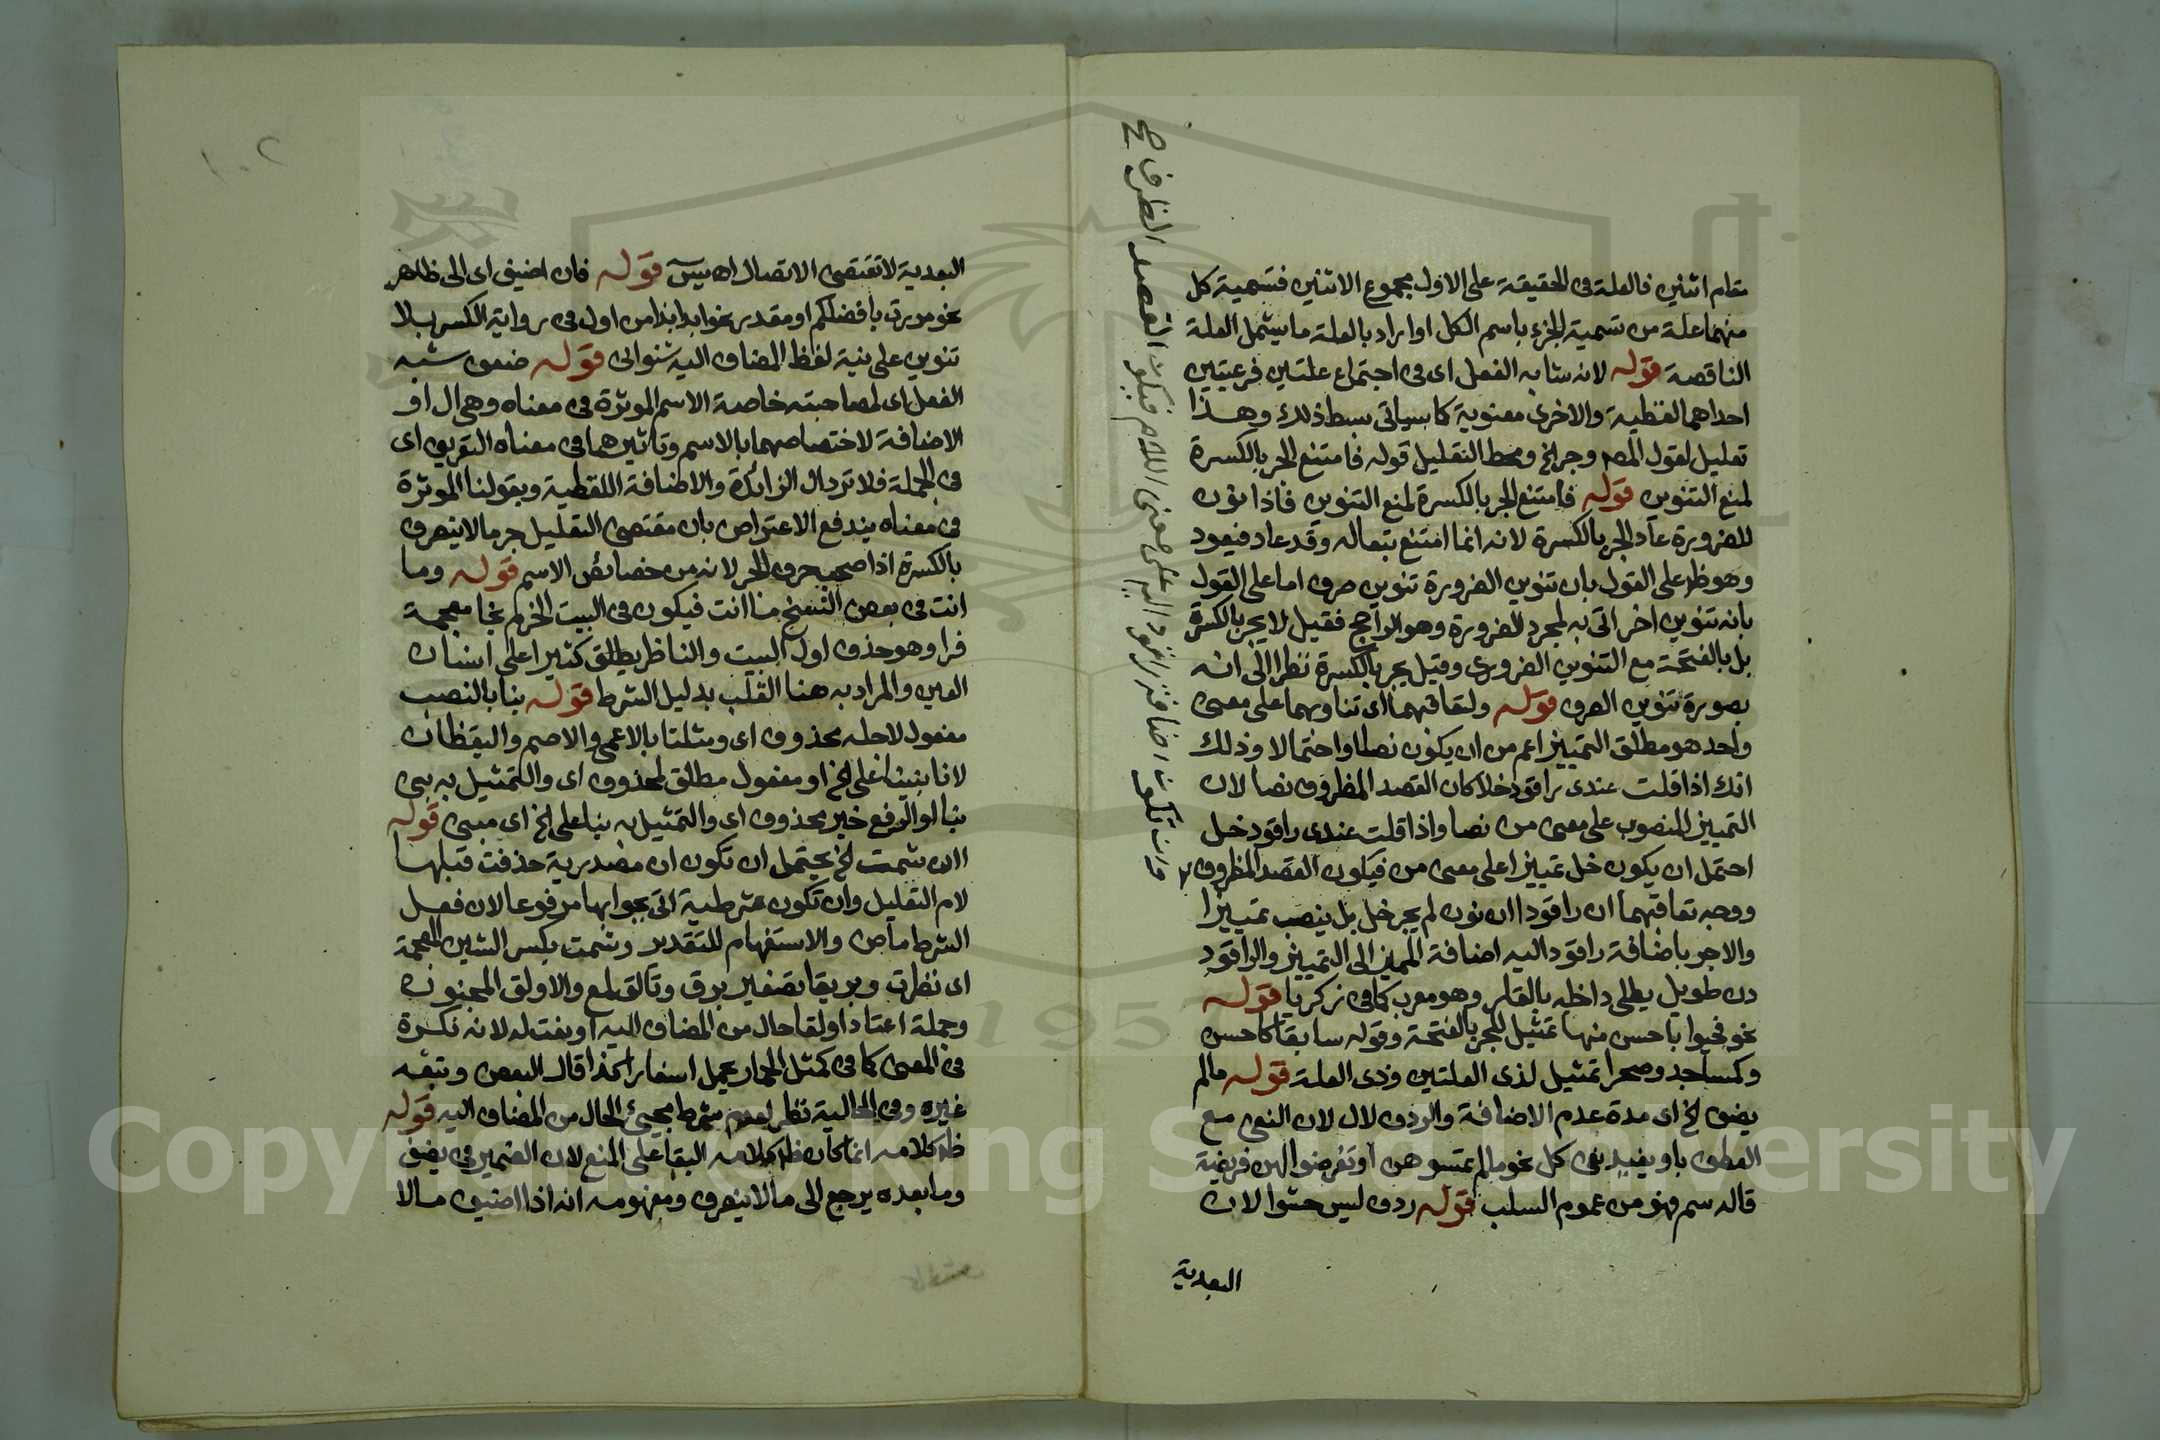 مقام اثنين فالعلة فى الحقيقة على الاول مجموع الاثنين فتسمية كل
منهما علة من تسمية الجزء باسم الكل او اراد بالعلة ما يشمل العلة
الناقصة قوله لانه شابه الفعل اى فى اجتماع علتين فرعيتين
احداهما لفظية والاخرى معنوية كما سياتى بسط ذلك وهذا
تعليل لقول المص وجر الخ ومحط التعليل قوله فامتنع الجر بالكسرة
لمنع التنوين قوله فامتنع الجر بالكسرة لمنع التنوين فاذا نون
للضرورة عاد الجر بالكسرة لانه انما امتنع تبعا له وقد عاد فيعود
وهو ظ على القول بان تنوين الضرورة تنوين صرف اما على القول
بانه تنوين اخر اتى به لمجرد الضرورة وهو الراجح فقيل لا يجر بالكسرة
بل بالفتحة مع التنوين الضرورى وقيل يجر بالكسرة نظرا الى انه
بصورة تنوين الصرف قوله ولتعاقبهما اى تناوبهما على معنى
واحد هو مطلق التمييز اعم من ان يكون نصا او احتمالا وذلك
انك اذا قلت عندى راقود خلا كان القصد المظروف نصا لان
التمييز المنصوب على معنى من نصا واذا قلت عندى راقود خل
احتمل ان يكون خل تمييزا على معنى من فيكون القصد المظروف
ووجه تعاقبهما ان راقودا ان نون لم يجر خل بل ينصب تمييزا
والا جر باضافة راقود اليه اضافة المميز الى التمييز والراقود
دن طويل يطلى داخله بالقار وهو معرب كما فى زكريا قوله
نحو فحيوا باحسن منها تمثيل للجر بالفتحة وقوله سابقا كاحسن
وكمساجد وصحرا تمثيل لذى العلتين وذى العلة قوله مالم
يضف الخ اى مدة عدم الاضافة والردف لال لان النفى مع
العطف باو يفيد نفى كل نحو مالم تمسوهن او تفرضوا لهن فريضة
قاله سم فهو من عموم السلب قوله ردف ليس حشوا لان
البعدية
وان تكون اضافة راقود اليه على معنى اللام فيكون القصد الظرف صح
١٠٢
البعدية لا تقتضى الاتصال اه يس قوله فان اضيف اى الى ظاهر
نحو مررت بافضلكم او مقدر نحو ابدا بذا من اول فى رواية الكسر بلا
تنوين على نية لفظ المضاف اليه شنوانى قوله ضعف شبه
الفعل اى لمصاحبته خاصة الاسم الموثرة فى معناه وهى ال او
الاضافة لاختصاصهما بالاسم وتاثيرهما فى معناه التعريف اى
فى الجملة فلا ترد ال الزائدة والاضافة اللفظية وبقولنا الموثرة
فى معناه يندفع الاعتراض بان مقتضى التعليل جر ما لا ينصرف
بالكسرة اذا صحب حرف الجر لانه من خصائص الاسم قوله وما
انت فى بعض النسخ ما انت فيكون فى البيت الخرم بخا معجمة
فرا وهو حذف اول البيت والناظر يطلق كثيرا على انسان
العين والمراد به هنا القلب بدليل الشرط قوله بنا بالنصب
مفعول لاجله محذوف اى ومثلنا بالاعمى والاصم واليقظان
لانا بنينا على الخ او مفعول مطلق لمحذوف اى والتمثيل به بنى
بنا او الرفع خبر محذوف اى والتمثيل به بنا على الخ اى مبنى قوله
اان شمت الخ يحتمل ان تكون ان مصدرية حذفت قبلها
لام التعليل وان تكون شرطية اتى بجوابها مرفوعا لان فعل
الشرط ماض والاستفهام للتقدير وشمت بكسر الشين المعجمة
اى نظرت وبريقا تصغير برق وتالق لمع والاولق المجنون
وجملة اعتاد اولقا حال من المضاف اليه او نعت له لانه نكرة
فى المعنى كما فى كمثل الحمار يحمل اسفارا كذا قال البعض وتبعه
غيره وفى الحالية نظر لعدم شرط مجيئ الحال من المضاف اليه قوله
ظ كلامه انما كان ظ كلامه البقا على المنع لان الضمير فى يضف
وما بعده يرجع الى ما لا ينصرف ومفهومه انه اذا اضيف مالا
Copyright © King Saud University
1957